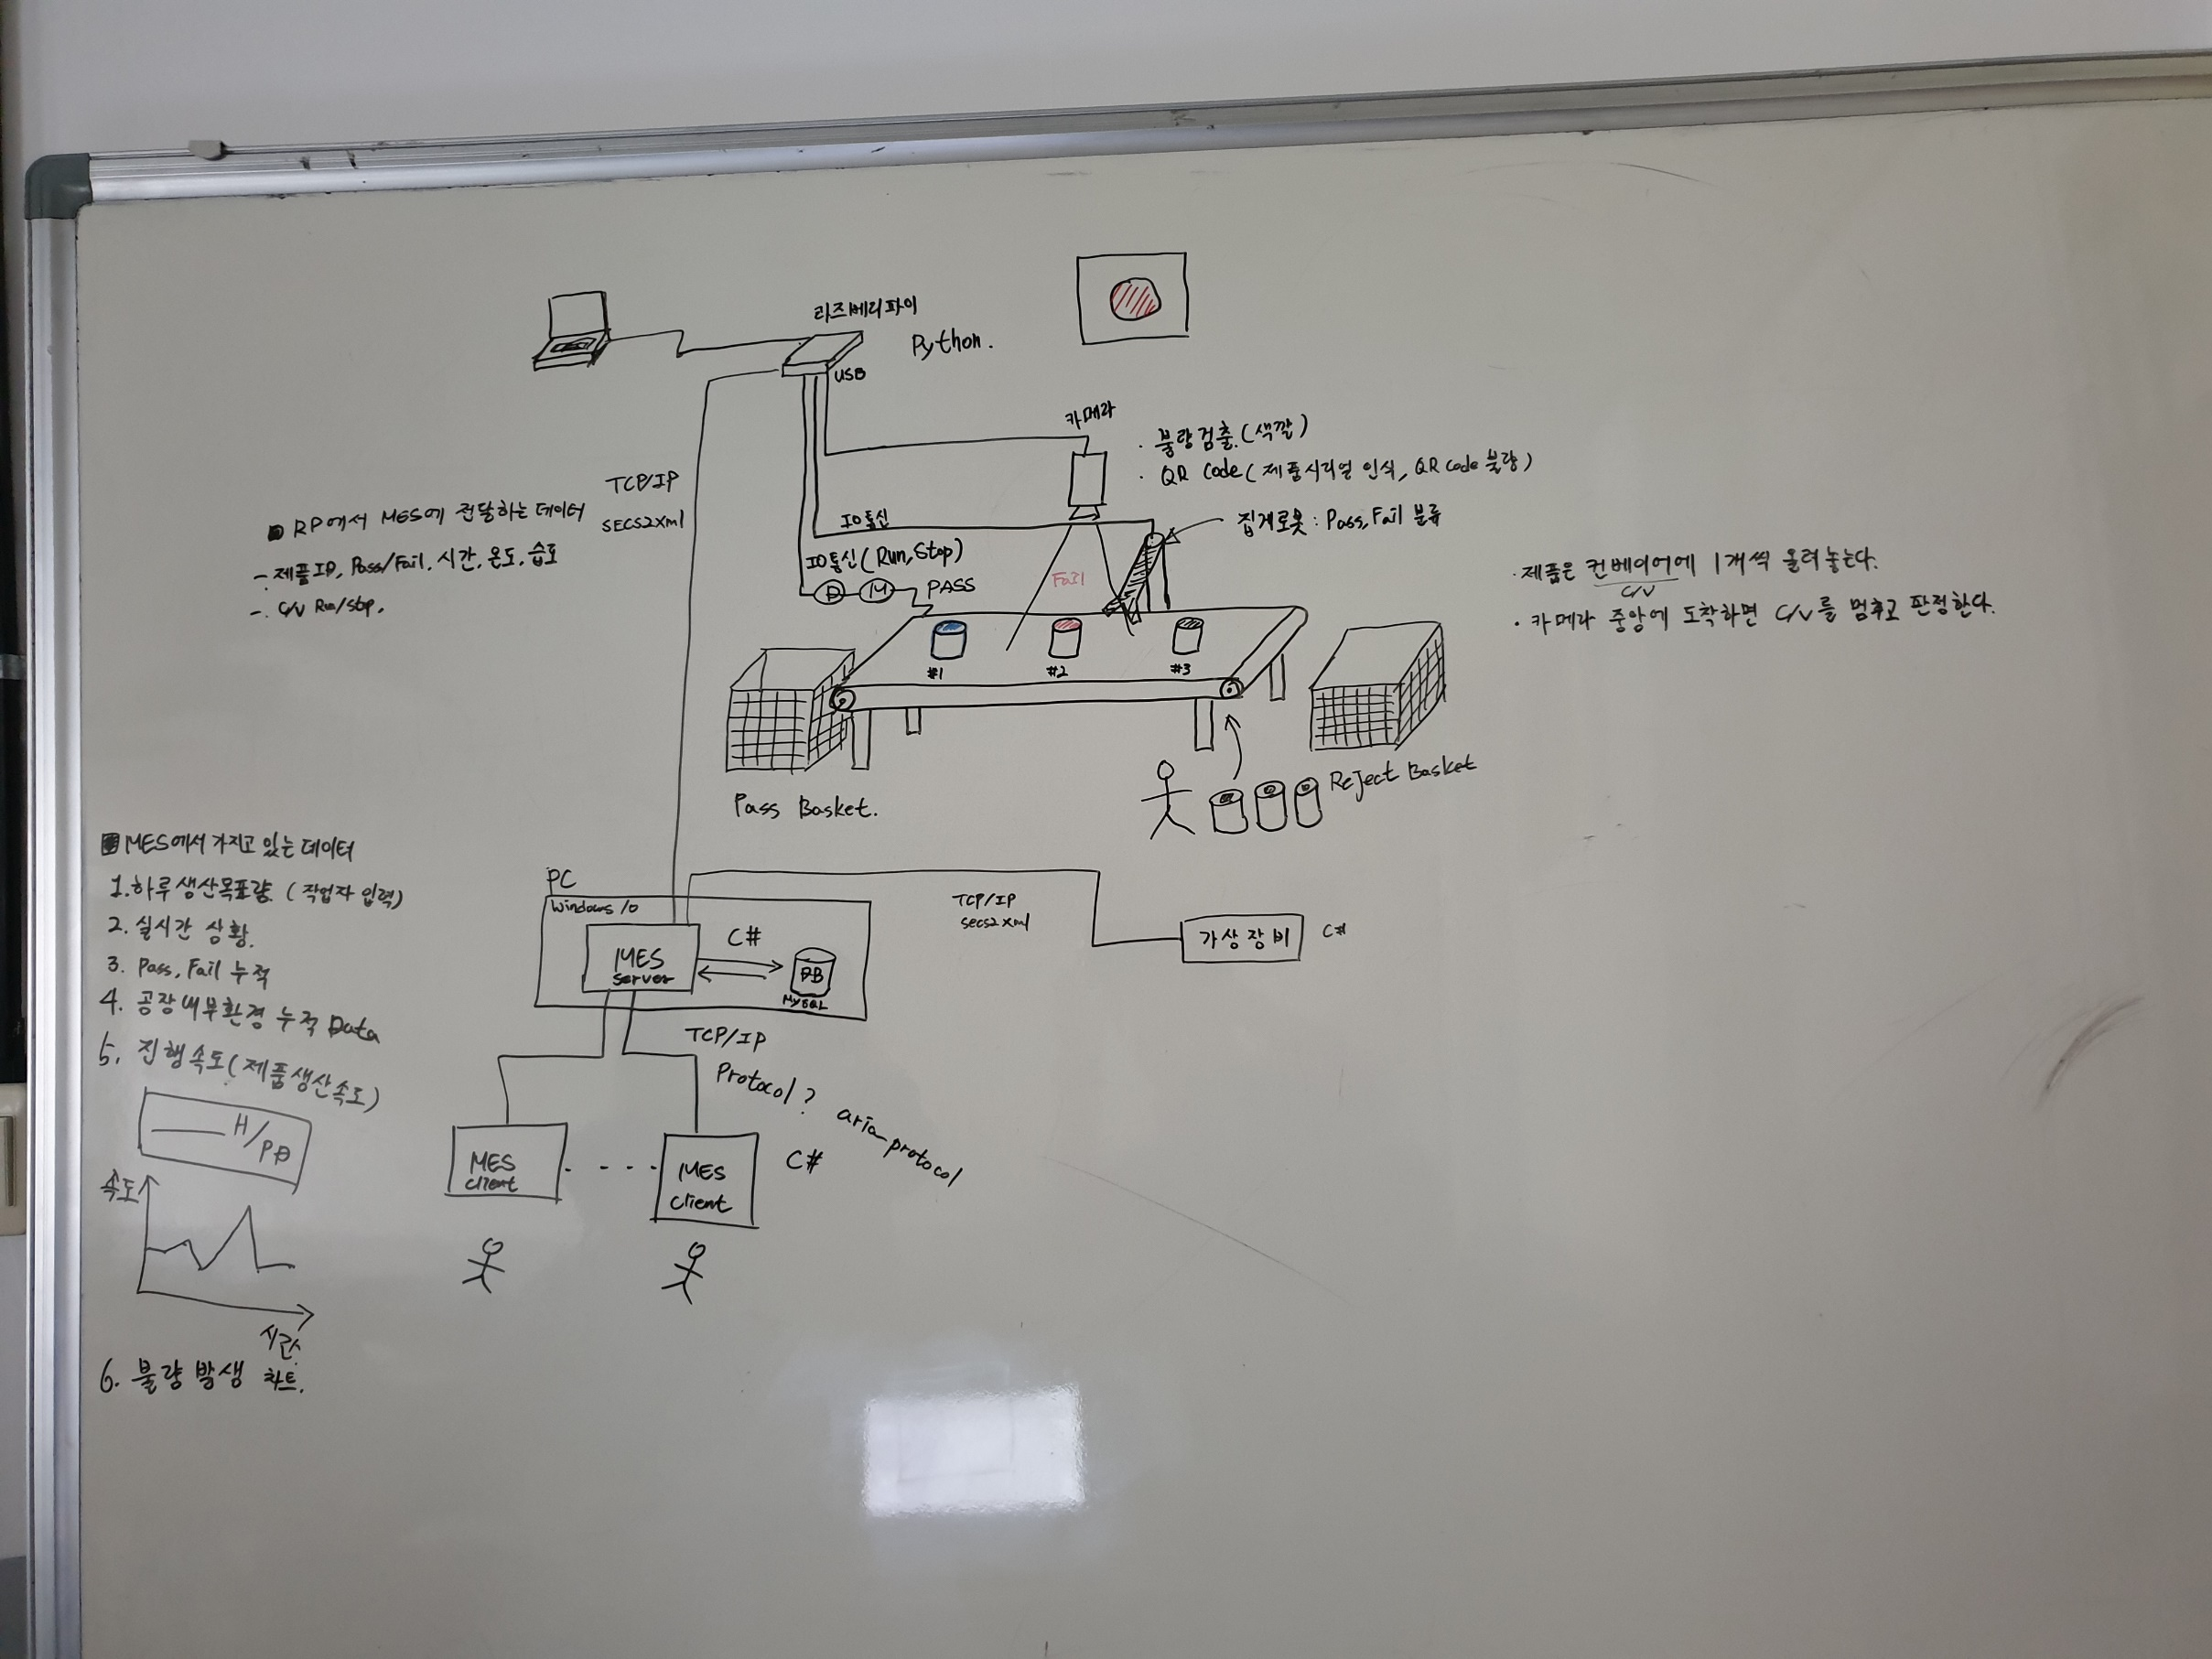 라즈베리파이
Python.
USB
카메라
· 불량검출.(색깔)
· QR code(제품시리얼 인식, QR code 불량)
TCP/IP
SECS2xml
RP에서 MES에 전달하는 데이터
- 제품ID, Pass/Fail, 시간, 온도, 습도
- C/V Run/Stop.
IO통신
IO통신(Run,Stop)
D M
PASS
Fail
집게로봇 : Pass, Fail 분류
· 제품은 컨베이어에 1개씩 올려놓는다.
C/V
· 카메라 중앙에 도착하면 C/V를 멈추고 판정한다.
#1
#2
#3
Pass Basket.
Reject Basket
MES에서 가지고 있는 데이터
1. 하루생산목표량. (작업자 입력)
2. 실시간 상황.
3. Pass, Fail 누적
4. 공장내부환경 누적 Data
5. 진행속도(제품생산속도)
H/PD
속도
시간.
6. 불량발생 차트.
PC
Windows 10
MES
server
C#
DB
MySQL
TCP/IP
secs2xml
가상장비
C#
TCP/IP
Protocol? aria_protocol
MES
client
MES
client
C#